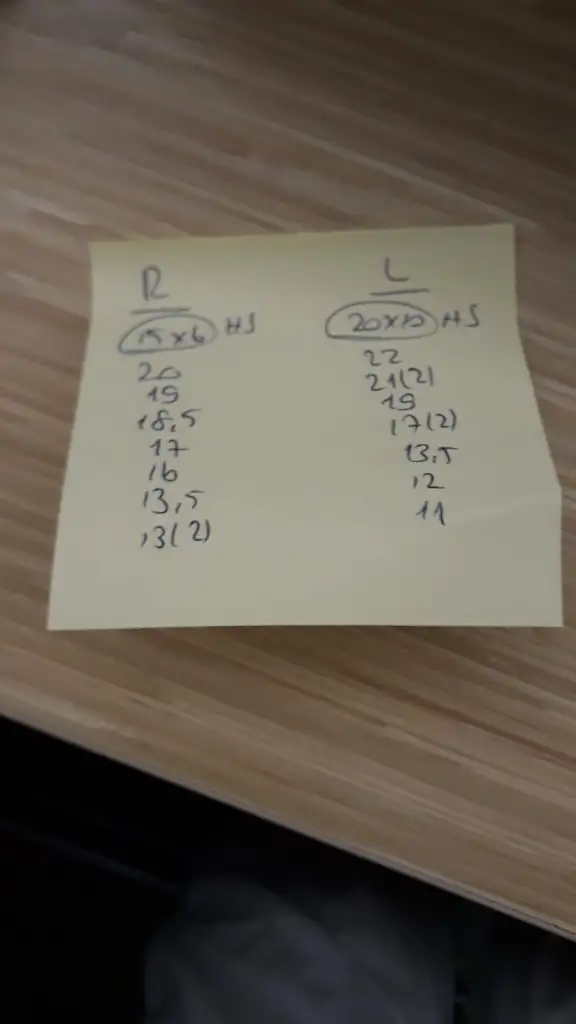 R L
15x6 HS 20x10 HS
20 22
19 21(2)
18,5 19
17 17(2)
16 13,5
13,5 12
13(2) 11